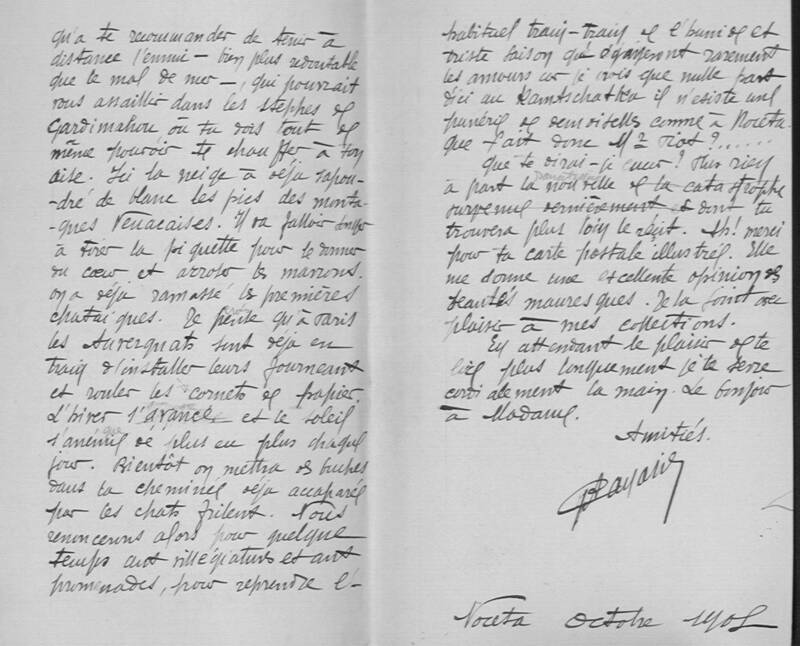 qu'à te recommander de tenir à
distance l'ennui – bien plus redoutable
que le mal de mer –, qui pourrait
vous assaillir dans les steppes de
Gardimahou où tu dois tout de
même pouvoir te chauffer à ton
aise. Ici la neige a déjà saupou-
-dré de blanc les pics des monta-
gnes Venacaises. Il va falloir songer
à tirer la piquette pour le donner
du cœur et arroser les marrons.
on a déjà ramassé les premières
chataignes. Je pense qu'à Paris
les Auvergnats sont déjà en
train d'installer leurs fourneaux
et rouler les cornets de papier.
L'hiver s'avance et le soleil
s'anémie de plus en plus chaque
jour. Bientôt on mettra des buches
dans la cheminée déjà accaparée
par les chats frileux. Nous
renoncerons alors pour quelque
temps aux villégiatures et aux
promenades, pour reprendre l'é-
habituel train-train de l'humide et
triste saison qu'égayeront rarement
les amours car je crois que nulle part
d'ici au Kamtschatka il n'existe une
punérie de demoiselles comme à Noceta.
que fait donc Mr Piot ?.....
Que te dirai-je encore ? Plus rien
à part la nouvelle de la catastrophe
survenue dernièrement et dont tu
trouvera plus loin le récit. Ah ! merci
pour ta carte postale illustrée. Elle
me donne une excellente opinion des
beautés mauresques. Je la joint avec
plaisir à mes collections.
En attendant le plaisir de te
lire plus longuement je te serre
cordialement la main. Le bonjour
à Madame.
Amitiés.
Noceta Octobre 1905